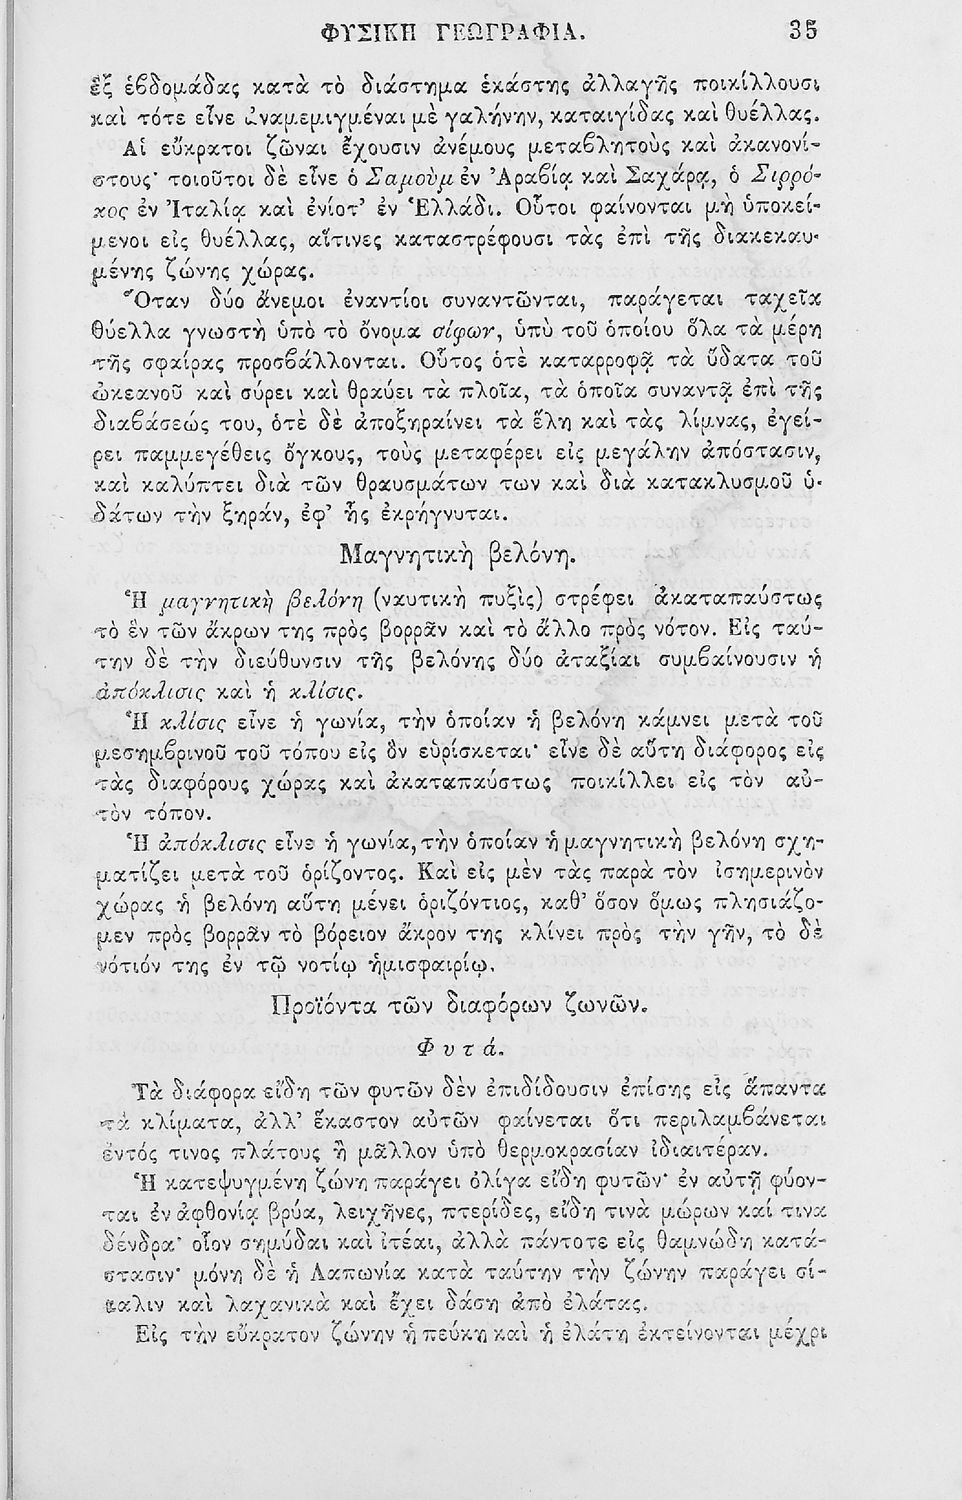 ΦΥΣΙΚΗ ΓΕΩΓΡΑΦΙΑ. 35
ἓξ ἑβδομάδας κατὰ τὸ διάστημα ἑκάστης ἀλλαγῆς ποικίλλουσι
καὶ τότε εἶνε ἀναμεμιγμέναι μὲ γαλήνην, καταιγίδας καὶ θυέλλας.
Αἱ εὔκρατοι ζῶναι ἔχουσιν ἀνέμους μεταβλητοὺς καὶ ἀκανονί-
στους· τοιοῦτοι δὲ εἶνε ὁ Σαμοὺμ ἐν Ἀραβίᾳ καὶ Σαχάρᾳ, ὁ Σιρρό-
κος ἐν Ἰταλίᾳ καὶ ἐνίοτ’ ἐν Ἑλλάδι. Οὗτοι φαίνονται μὴ ὑποκεί-
μενοι εἰς θυέλλας, αἵτινες καταστρέφουσι τὰς ἐπὶ τῆς διακεκαυ-
μένης ζώνης χώρας.
Ὅταν δύο ἄνεμοι ἐναντίοι συναντῶνται, παράγεται ταχεῖα
θύελλα γνωστὴ ὑπὸ τὸ ὄνομα σίφων, ὑπὸ τοῦ ὁποίου ὅλα τὰ μέρη
τῆς σφαίρας προσβάλλονται. Οὗτος ὁτὲ καταρροφᾷ τὰ ὕδατα τοῦ
ὠκεανοῦ καὶ σύρει καὶ θραύει τὰ πλοῖα, τὰ ὁποῖα συναντᾷ ἐπὶ τῆς
διαβάσεώς του, ὁτὲ δὲ ἀποξηραίνει τὰ ἕλη καὶ τὰς λίμνας, ἐγεί-
ρει παμμεγέθεις ὄγκους, τοὺς μεταφέρει εἰς μεγάλην ἀπόστασιν,
καὶ καλύπτει διὰ τῶν θραυσμάτων των καὶ διὰ κατακλυσμοῦ ὑ-
δάτων τὴν ξηράν, ἐφ’ ἧς ἐκρήγνυται.
Μαγνητικὴ βελόνη.
Ἡ μαγνητικὴ βελόνη (ναυτικὴ πυξὶς) στρέφει ἀκαταπαύστως
τὸ ἓν τῶν ἄκρων της πρὸς βορρᾶν καὶ τὸ ἄλλο πρὸς νότον. Εἰς ταύ-
την δὲ τὴν διεύθυνσιν τῆς βελόνης δύο ἀταξίαι συμβαίνουσιν ἡ
ἀπόκλισις καὶ ἡ κλίσις.
Ἡ κλίσις εἶνε ἡ γωνία, τὴν ὁποίαν ἡ βελόνη κάμνει μετὰ τοῦ
μεσημβρινοῦ τοῦ τόπου εἰς ὃν εὑρίσκεται· εἶνε δὲ αὕτη διάφορος εἰς
τὰς διαφόρους χώρας καὶ ἀκαταπαύστως ποικίλλει εἰς τὸν αὐ-
τὸν τόπον.
Ἡ ἀπόκλισις εἶνε ἡ γωνία, τὴν ὁποίαν ἡ μαγνητικὴ βελόνη σχη-
ματίζει μετὰ τοῦ ὁρίζοντος. Καὶ εἰς μὲν τὰς παρὰ τὸν ἰσημερινὸν
χώρας ἡ βελόνη αὕτη μένει ὁριζόντιος, καθ’ ὅσον ὅμως πλησιάζο-
μεν πρὸς βορρᾶν τὸ βόρειον ἄκρον της κλίνει πρὸς τὴν γῆν, τὸ δὲ
νότιόν της ἐν τῷ νοτίῳ ἡμισφαιρίῳ.
Προϊόντα τῶν διαφόρων ζωνῶν.
Φυτά.
Τὰ διάφορα εἴδη τῶν φυτῶν δὲν ἐπιδίδουσιν ἐπίσης εἰς ἅπαντα
τὰ κλίματα, ἀλλ’ ἕκαστον αὐτῶν φαίνεται ὅτι περιλαμβάνεται
ἐντός τινος πλάτους ἢ μᾶλλον ὑπὸ θερμοκρασίαν ἰδιαιτέραν.
Ἡ κατεψυγμένη ζώνη παράγει ὀλίγα εἴδη φυτῶν· ἐν αὐτῇ φύον-
ται ἐν ἀφθονίᾳ βρύα, λειχῆνες, πτερίδες, εἴδη τινὰ μώρων καί τινα
δένδρα· οἷον σημύδαι καὶ ἰτέαι, ἀλλὰ πάντοτε εἰς θαμνώδη κατά-
στασιν· μόνη δὲ ἡ Λαπωνία κατὰ ταύτην τὴν ζώνην παράγει σί-
καλιν καὶ λαχανικὰ καὶ ἔχει δάση ἀπὸ ἐλάτας.
Εἰς τὴν εὔκρατον ζώνην ἡ πεύκη καὶ ἡ ἐλάτη ἐκτείνονται μέχρι